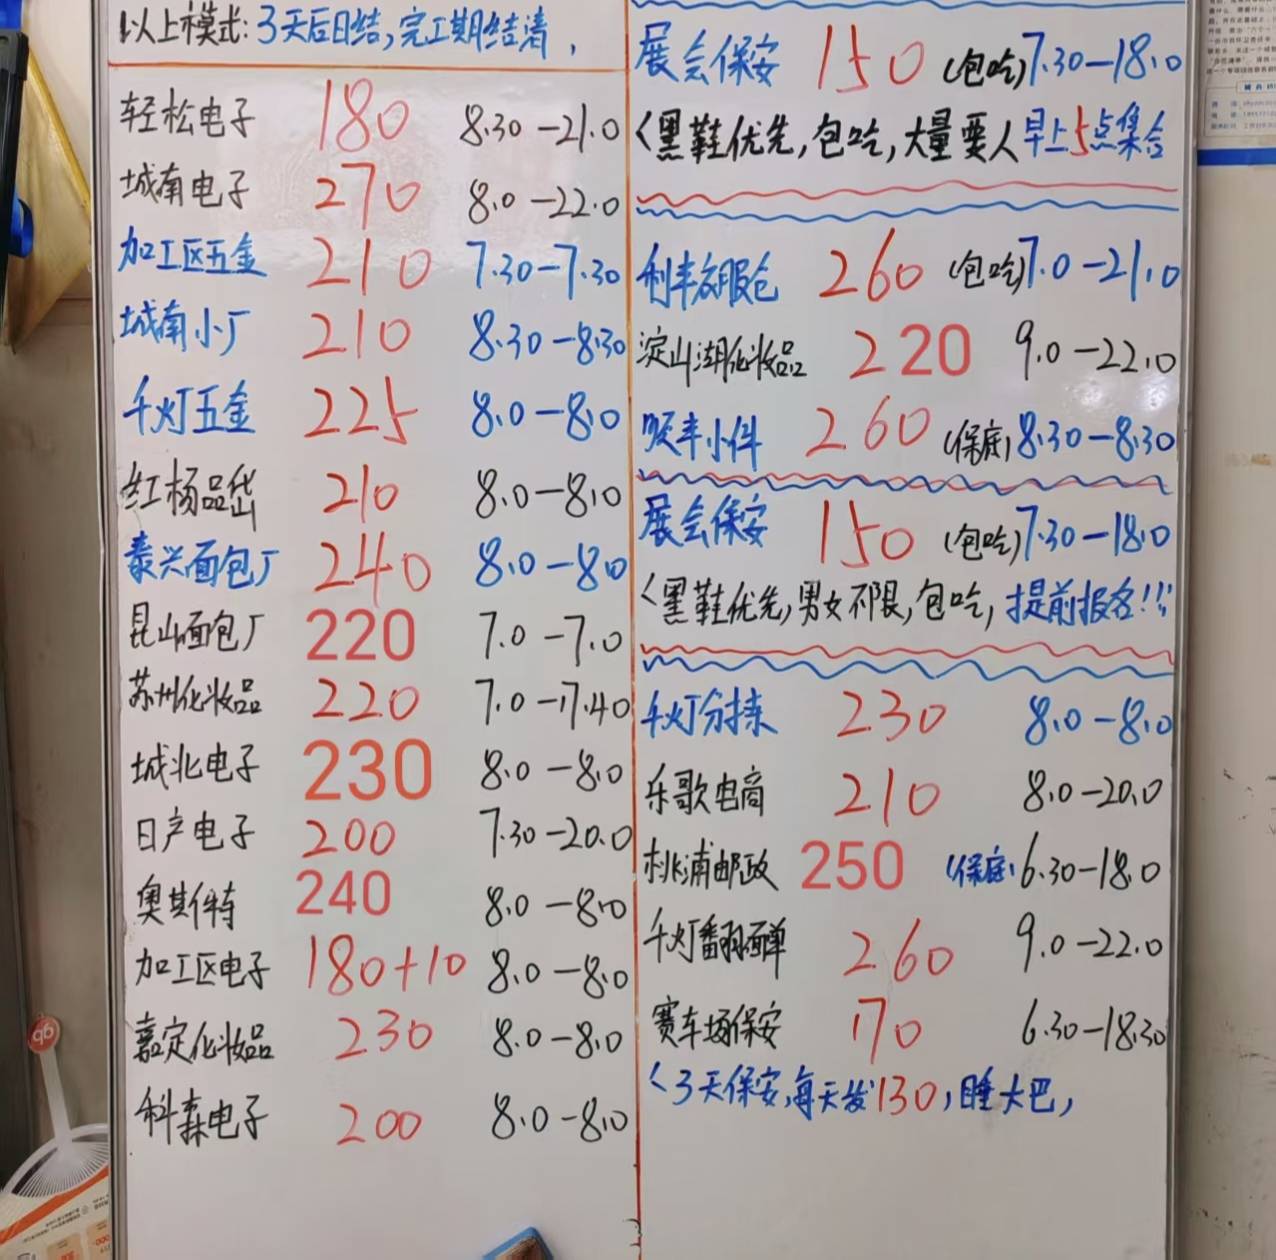 以上模式:3天后日结,完工期结清,
轻松电子 180 8.30-21.0
城南电子 270 8.0-22.0
加工区五金 210 7.30-7.30
城南小厂 210 8.30-8.30
千灯五金 225 8.0-8.0
红杨品岱 210 8.0-8.0
泰兴面包厂 240 8.0-8.0
昆山面包厂 220 7.0-7.0
苏州化妆品 220 7.0-17.40
城北电子 230 8.0-8.0
日产电子 200 7.30-20.0
奥斯特 240 8.0-8.0
加工区电子 180+10 8.0-8.0
嘉定化妆品 230 8.0-8.0
科森电子 200 8.0-8.0
展会保安 150 (包吃)7.30-18.0
<黑鞋优先,包吃,大量要人早上5点集合
利丰衣服仓 260 (包吃)7.0-21.0
淀山湖化妆品 220 9.0-22.0
顺丰小件 260 (保底)8.30-8.30
展会保安 150 (包吃)7.30-18.0
<黑鞋优先,男女不限,包吃,提前报名!!!
千灯分拣 230 8.0-8.0
乐歌电商 210 8.0-20.0
桃浦邮政 250 (保底)6.30-18.0
千灯翻面单 260 9.0-22.0
赛车场保安 170 6.30-18.30
<3天保安,每天发130,睡大巴,